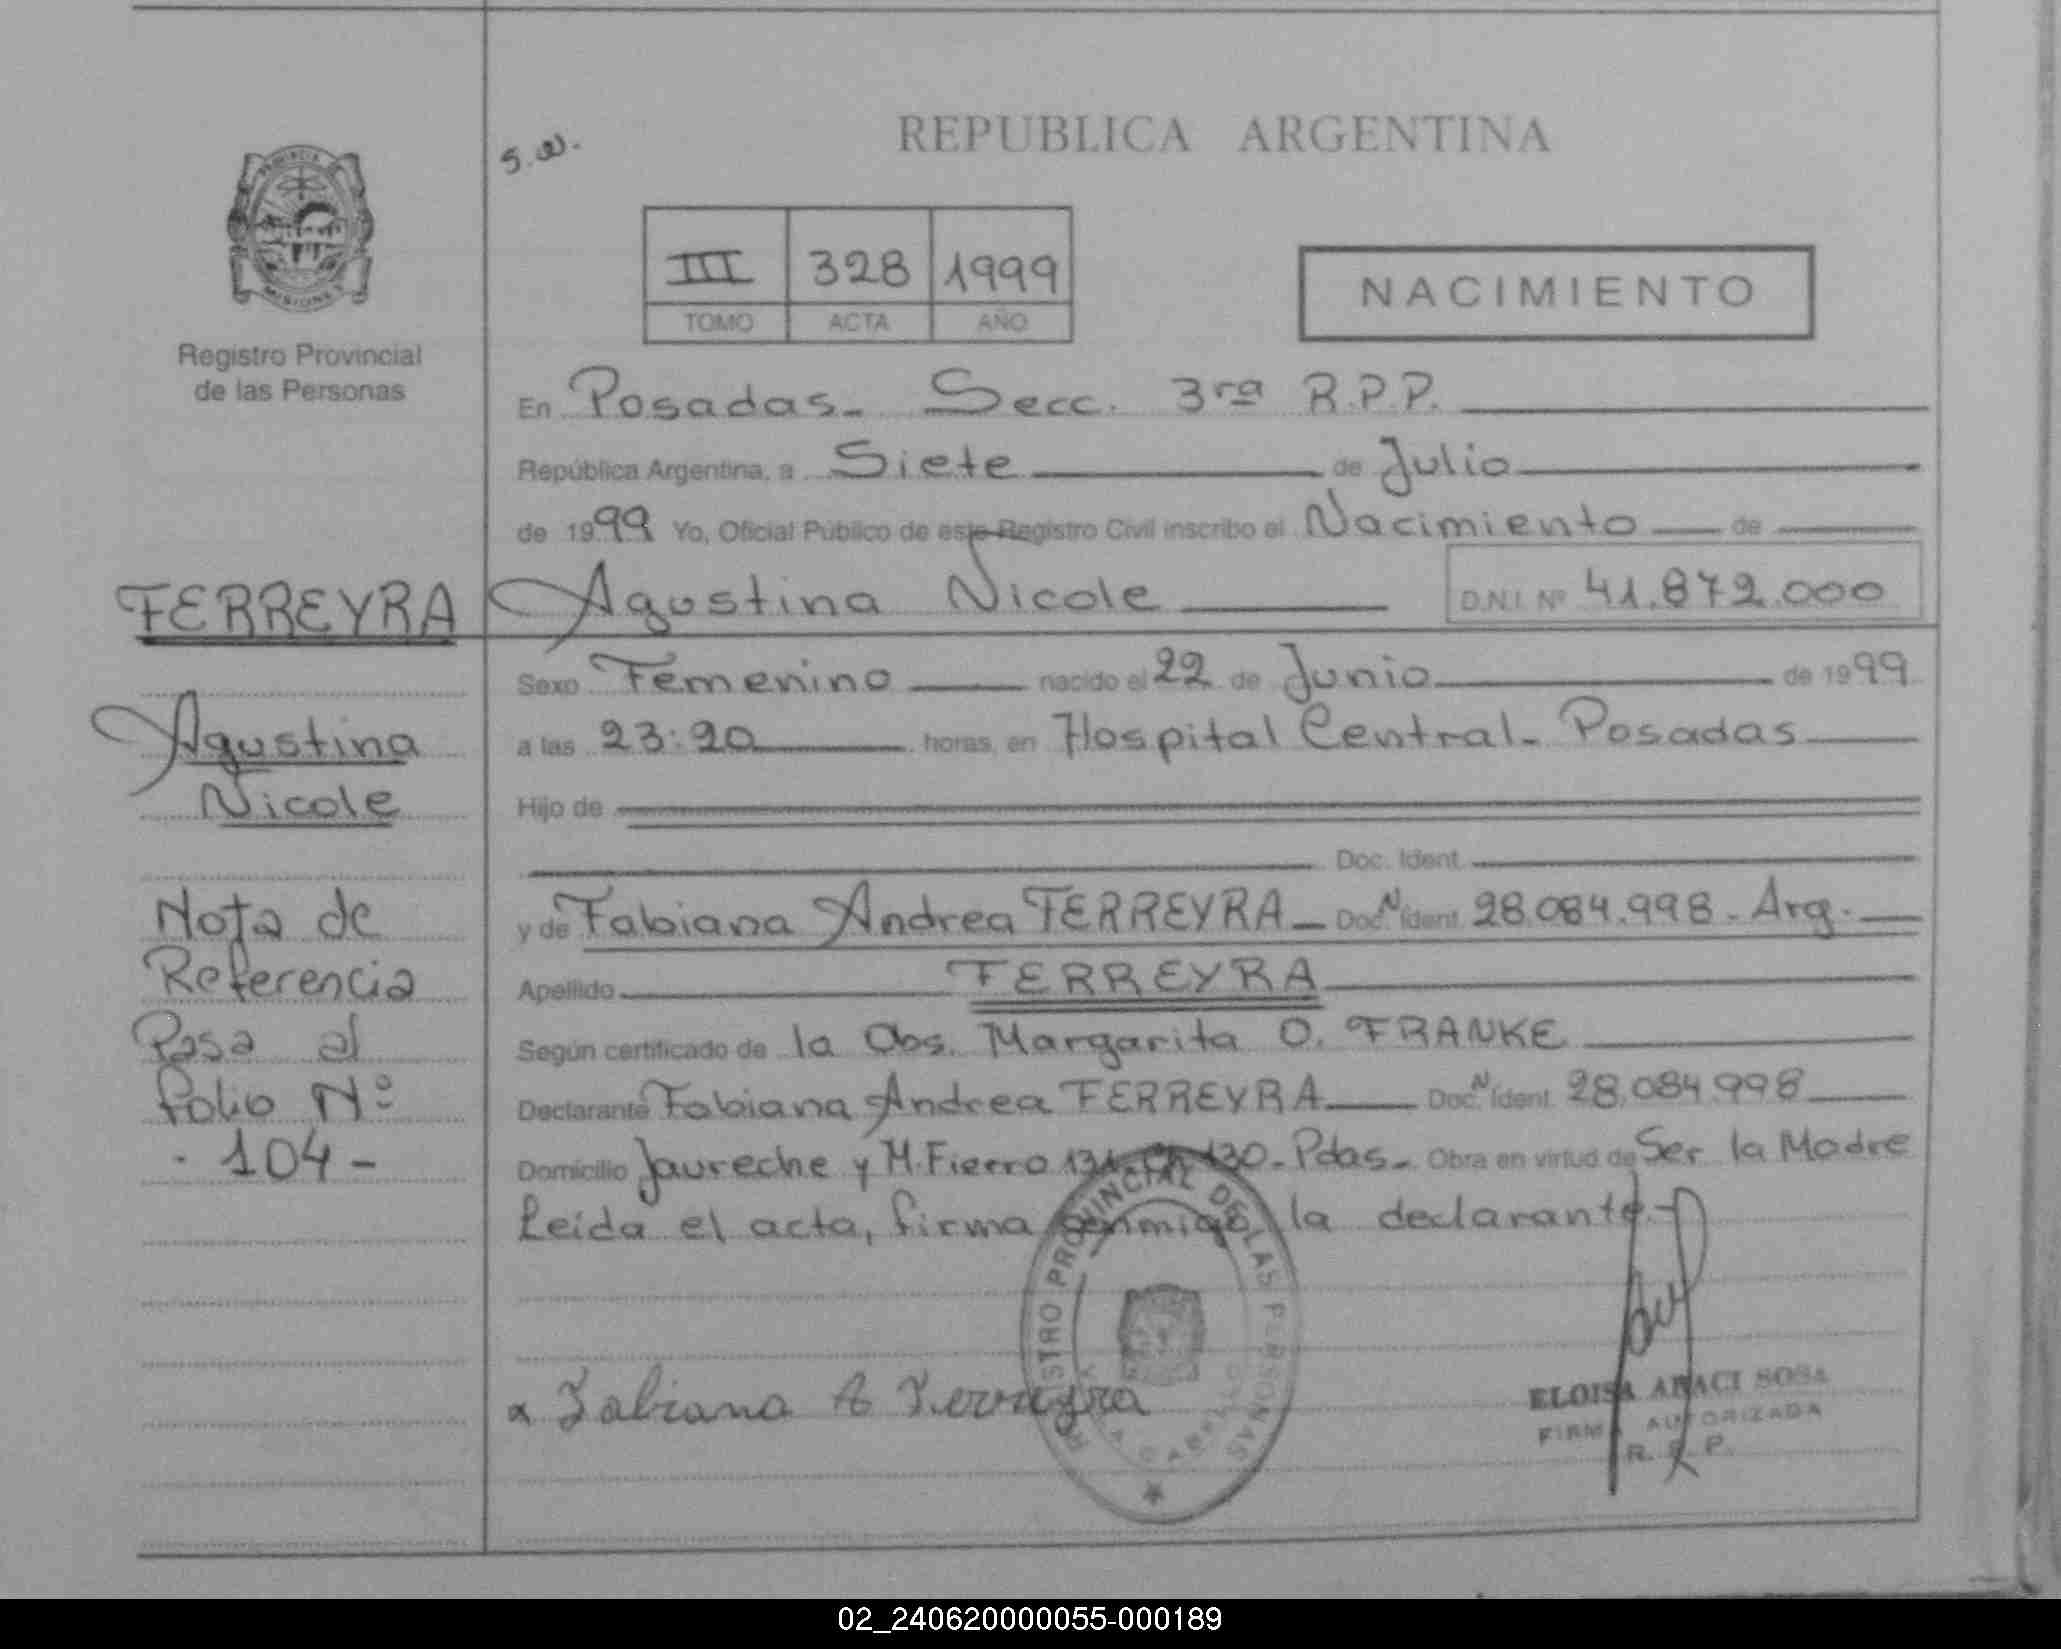 REPUBLICA ARGENTINA
PROVINCIA
MISIONES
III 328 1999
TOMO ACTA AÑO
NACIMIENTO
Registro Provincial
de las Personas
En Posadas- Secc. 3ra R.P.P.
República Argentina, a Siete de Julio
de 1999 Yo, Oficial Público de este Registro Civil inscribo el Nacimiento de
FERREYRA Agustina Nicole D.N.I. Nº 41.872.000
Sexo Femenino nacido el 22 de Junio de 1999
Agustina
a las 23:20 horas, en Hospital Central- Posadas
Nicole
Hijo de
Doc. Ident.
Nota de
y de Fabiana Andrea FERREYRA - Doc. N Ident. 28.084.998 - Arg.
Referencia
Apellido FERREYRA
Pasa al
Según certificado de la Obs. Margarita O. FRANKE
Folio Nº
Declarante Fabiana Andrea FERREYRA Doc. N Ident. 28.084.998
- 104 -
Domicilio Jaureche y M. Fierro 130- Pdas- Obra en virtud de Ser la Madre
Leida el acta, firma conmigo la declarante-
REGISTRO PROVINCIAL DE LAS PERSONAS
Fabiana A Ferreyra
ELOISA ARACI SOSA
FIRMA AUTORIZADA
R. P. P.
02_240620000055-000189